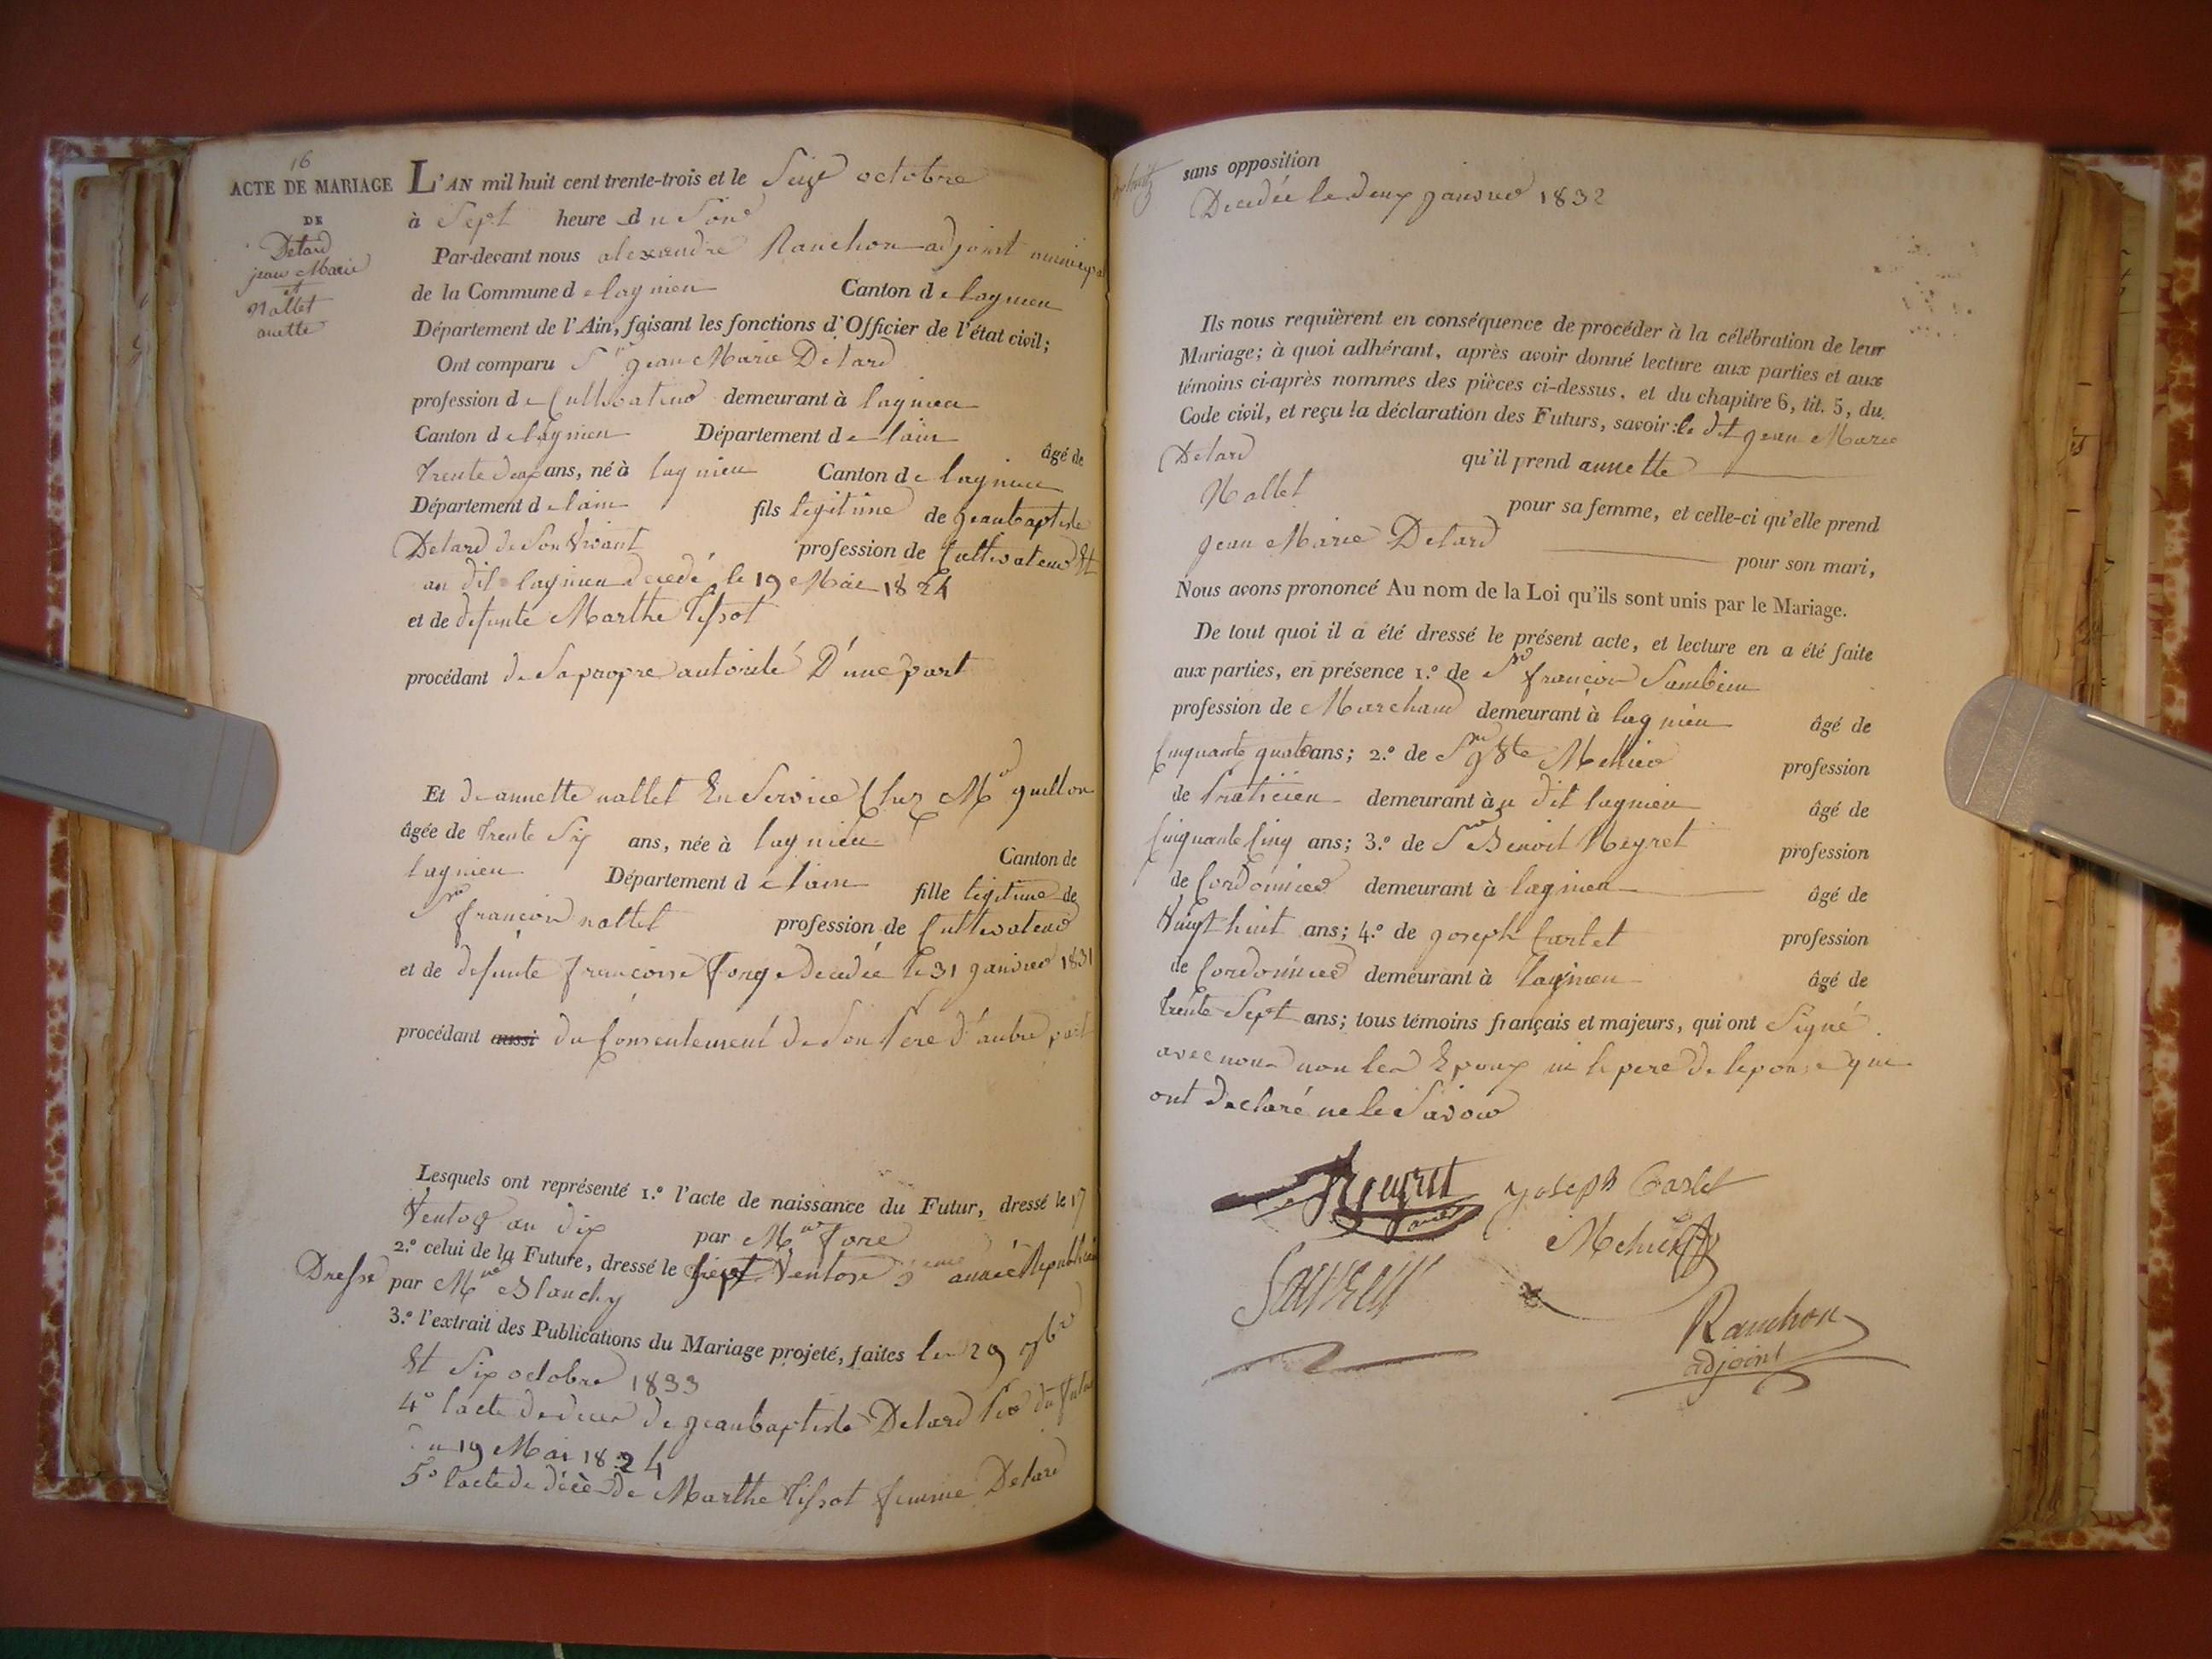 16
ACTE DE MARIAGE
DE
Detard
jean Marie
et
Nallet
anette
L'AN mil huit cent trente-trois et le Seize octobre
à Sept heure du Soir
Par-devant nous alexandre Ranchon adjoint municipal
de la Commune de lagnieu Canton de lagnieu
Département de l'Ain, faisant les fonctions d'Officier de l'état civil;
Ont comparu Sr jean Marie Detard
profession de Cultivateur demeurant à lagnieu
Canton de lagnieu Département de lain âgé de
trente deux ans, né à lagnieu Canton de lagnieu
Département de lain fils legitime de jean baptiste
Detard de Son Vivant profession de Cultivateur Et
au dit lagnieu decedé le 19 Mai 1824
et de defunte Marthe tissot
procédant de Sa propre autorité D'une part
Et de annette nallet En Service Chez Mr guillon
âgée de trente Six ans, née à lagnieu Canton de
lagnieu Département de lain fille legitime de
Sr françois nallet profession de Cultivateur
et de defunte françoise Decedée le 31 janvier 1831
procédant aussi du Consentement de Son Pere d'autre part
Lesquels ont représenté 1.° l'acte de naissance du Futur, dressé le 17
Ventose an dix par Mr
2.° celui de la Future, dressé le Ventose 5eme année Republicaine
Dressé par Mr Blanchy
3.° l'extrait des Publications du Mariage projeté, faites les 29 7bre
Et Six octobre 1833
4° lacte de deces de jean baptiste Detard Pere du futur
du 19 Mai 1824
5° lacte de décès de Marthe tissot femme Detard
sans opposition
Decedée le deux janvier 1832
Ils nous requièrent en conséquence de procéder à la célébration de leur
Mariage; à quoi adhérant, après avoir donné lecture aux parties et aux
témoins ci-après nommes des pièces ci-dessus, et du chapitre 6, tit. 5, du
Code civil, et reçu la déclaration des Futurs, savoir: le dit jean Marie
Detard qu'il prend annette
Nallet pour sa femme, et celle-ci qu'elle prend
jean Marie Detard pour son mari,
Nous avons prononcé Au nom de la Loi qu'ils sont unis par le Mariage.
De tout quoi il a été dressé le présent acte, et lecture en a été faite
aux parties, en présence 1.° de Sr françois
profession de Marchand demeurant à lagnieu âgé de
Cinquante quatre ans; 2.° de Sr jn Bte profession
de Praticien demeurant au dit lagnieu âgé de
Cinquante Cinq ans; 3.° de Sr Benoit Neyret profession
de Cordonnier demeurant à lagnieu âgé de
Vingt huit ans; 4.° de joseph Carlet profession
de Cordonnier demeurant à lagnieu âgé de
trente Sept ans; tous témoins français et majeurs, qui ont Signé
avec nous non les Epoux ni le pere de lepouse que
ont declaré ne le Savoir
Neyret
joseph Carlet
Ranchon
adjoint